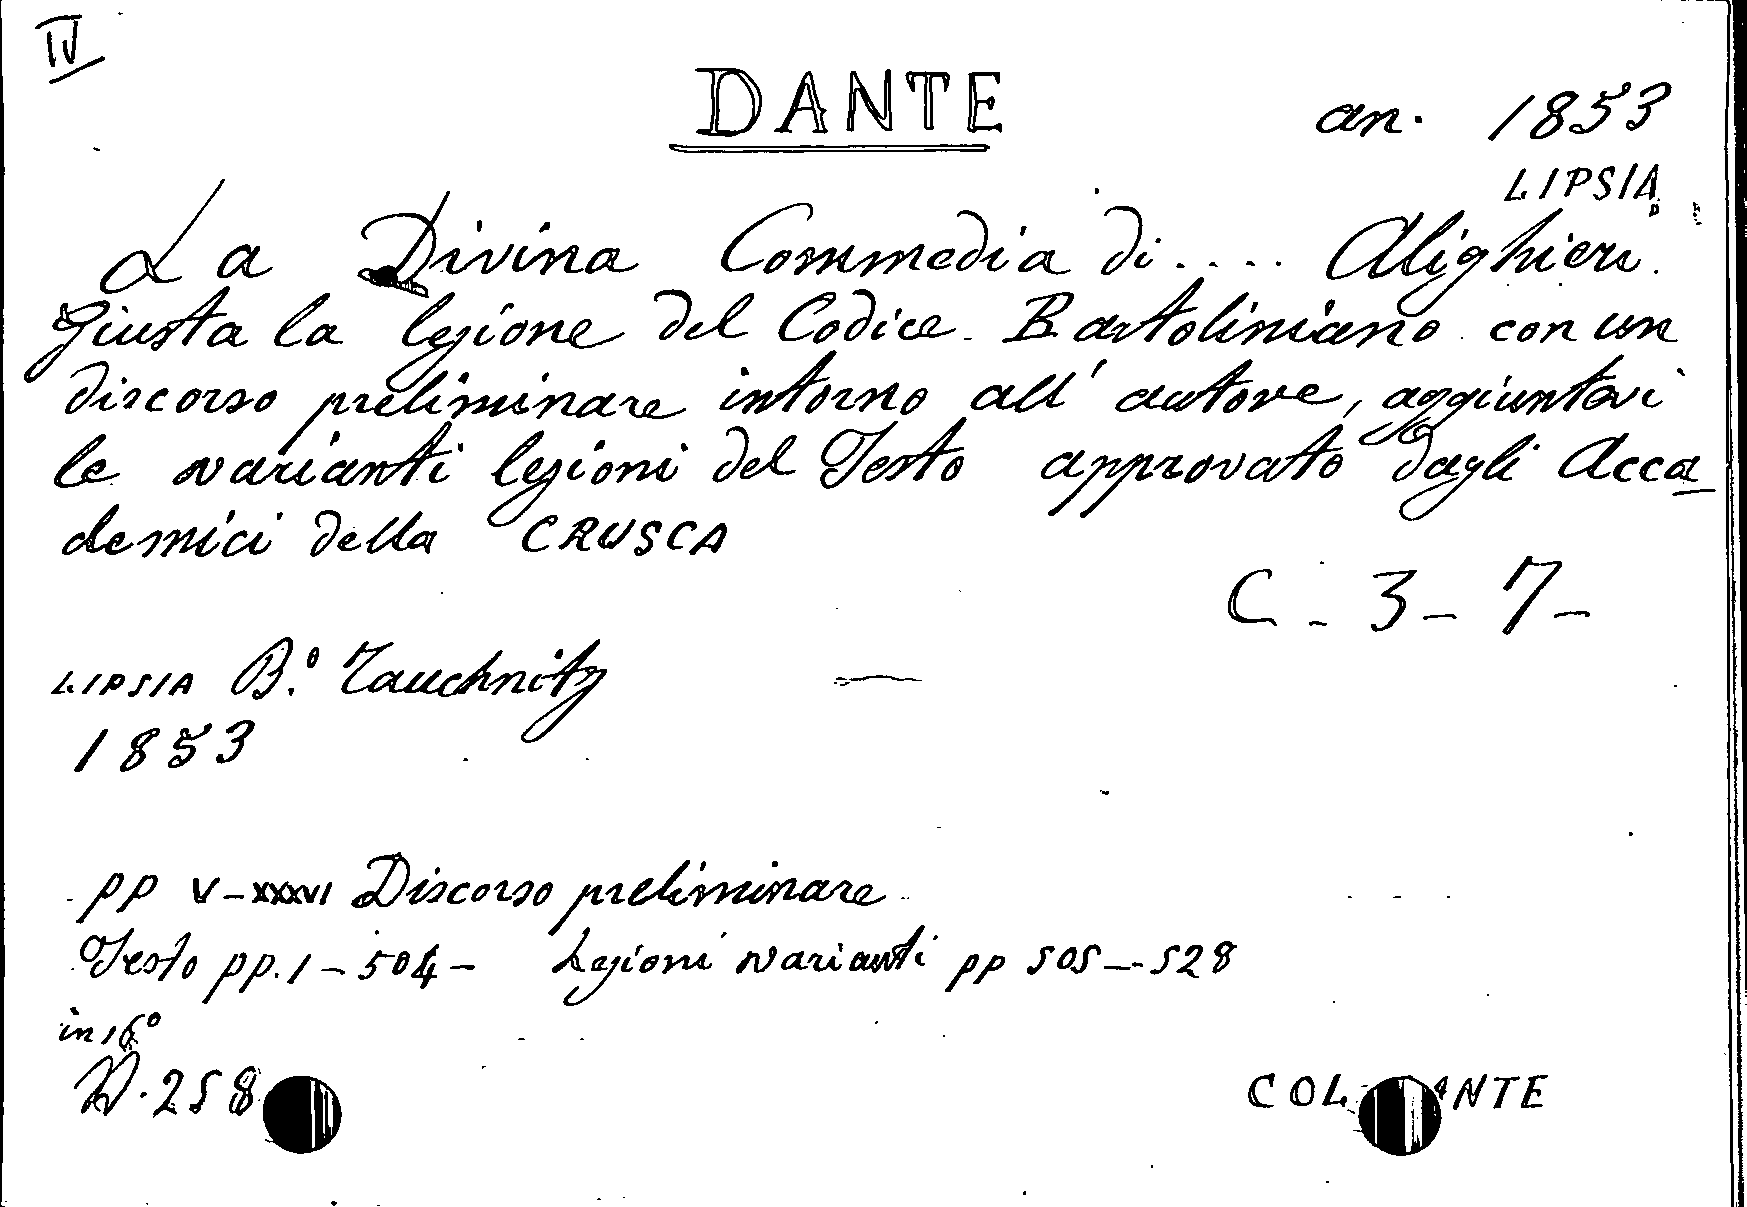 IV
DANTE
an. 1853
LIPSIA
La Divina Commedia di.... Alighieri.
Giusta la lezione del Codice Bartoliniano con un
discorso preliminare intorno all' autore, aggiuntovi
le varianti lezioni del Testo approvato dagli Acca
demici della CRUSCA
C - 3 - 7 -
LIPSIA B.° Tauchnitz
1853
pp V-XXXVI Discorso preliminare
Testo pp. 1-504- Lezioni varianti pp 505--528
in 16°
258
COL